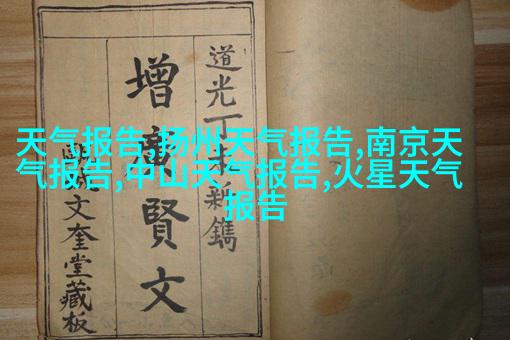 道光丁未新鐫
增廣賢文
文奎堂藏板
天气报告,扬州天气报告,南京天
气报告,中山天气报告,火星天气
报告